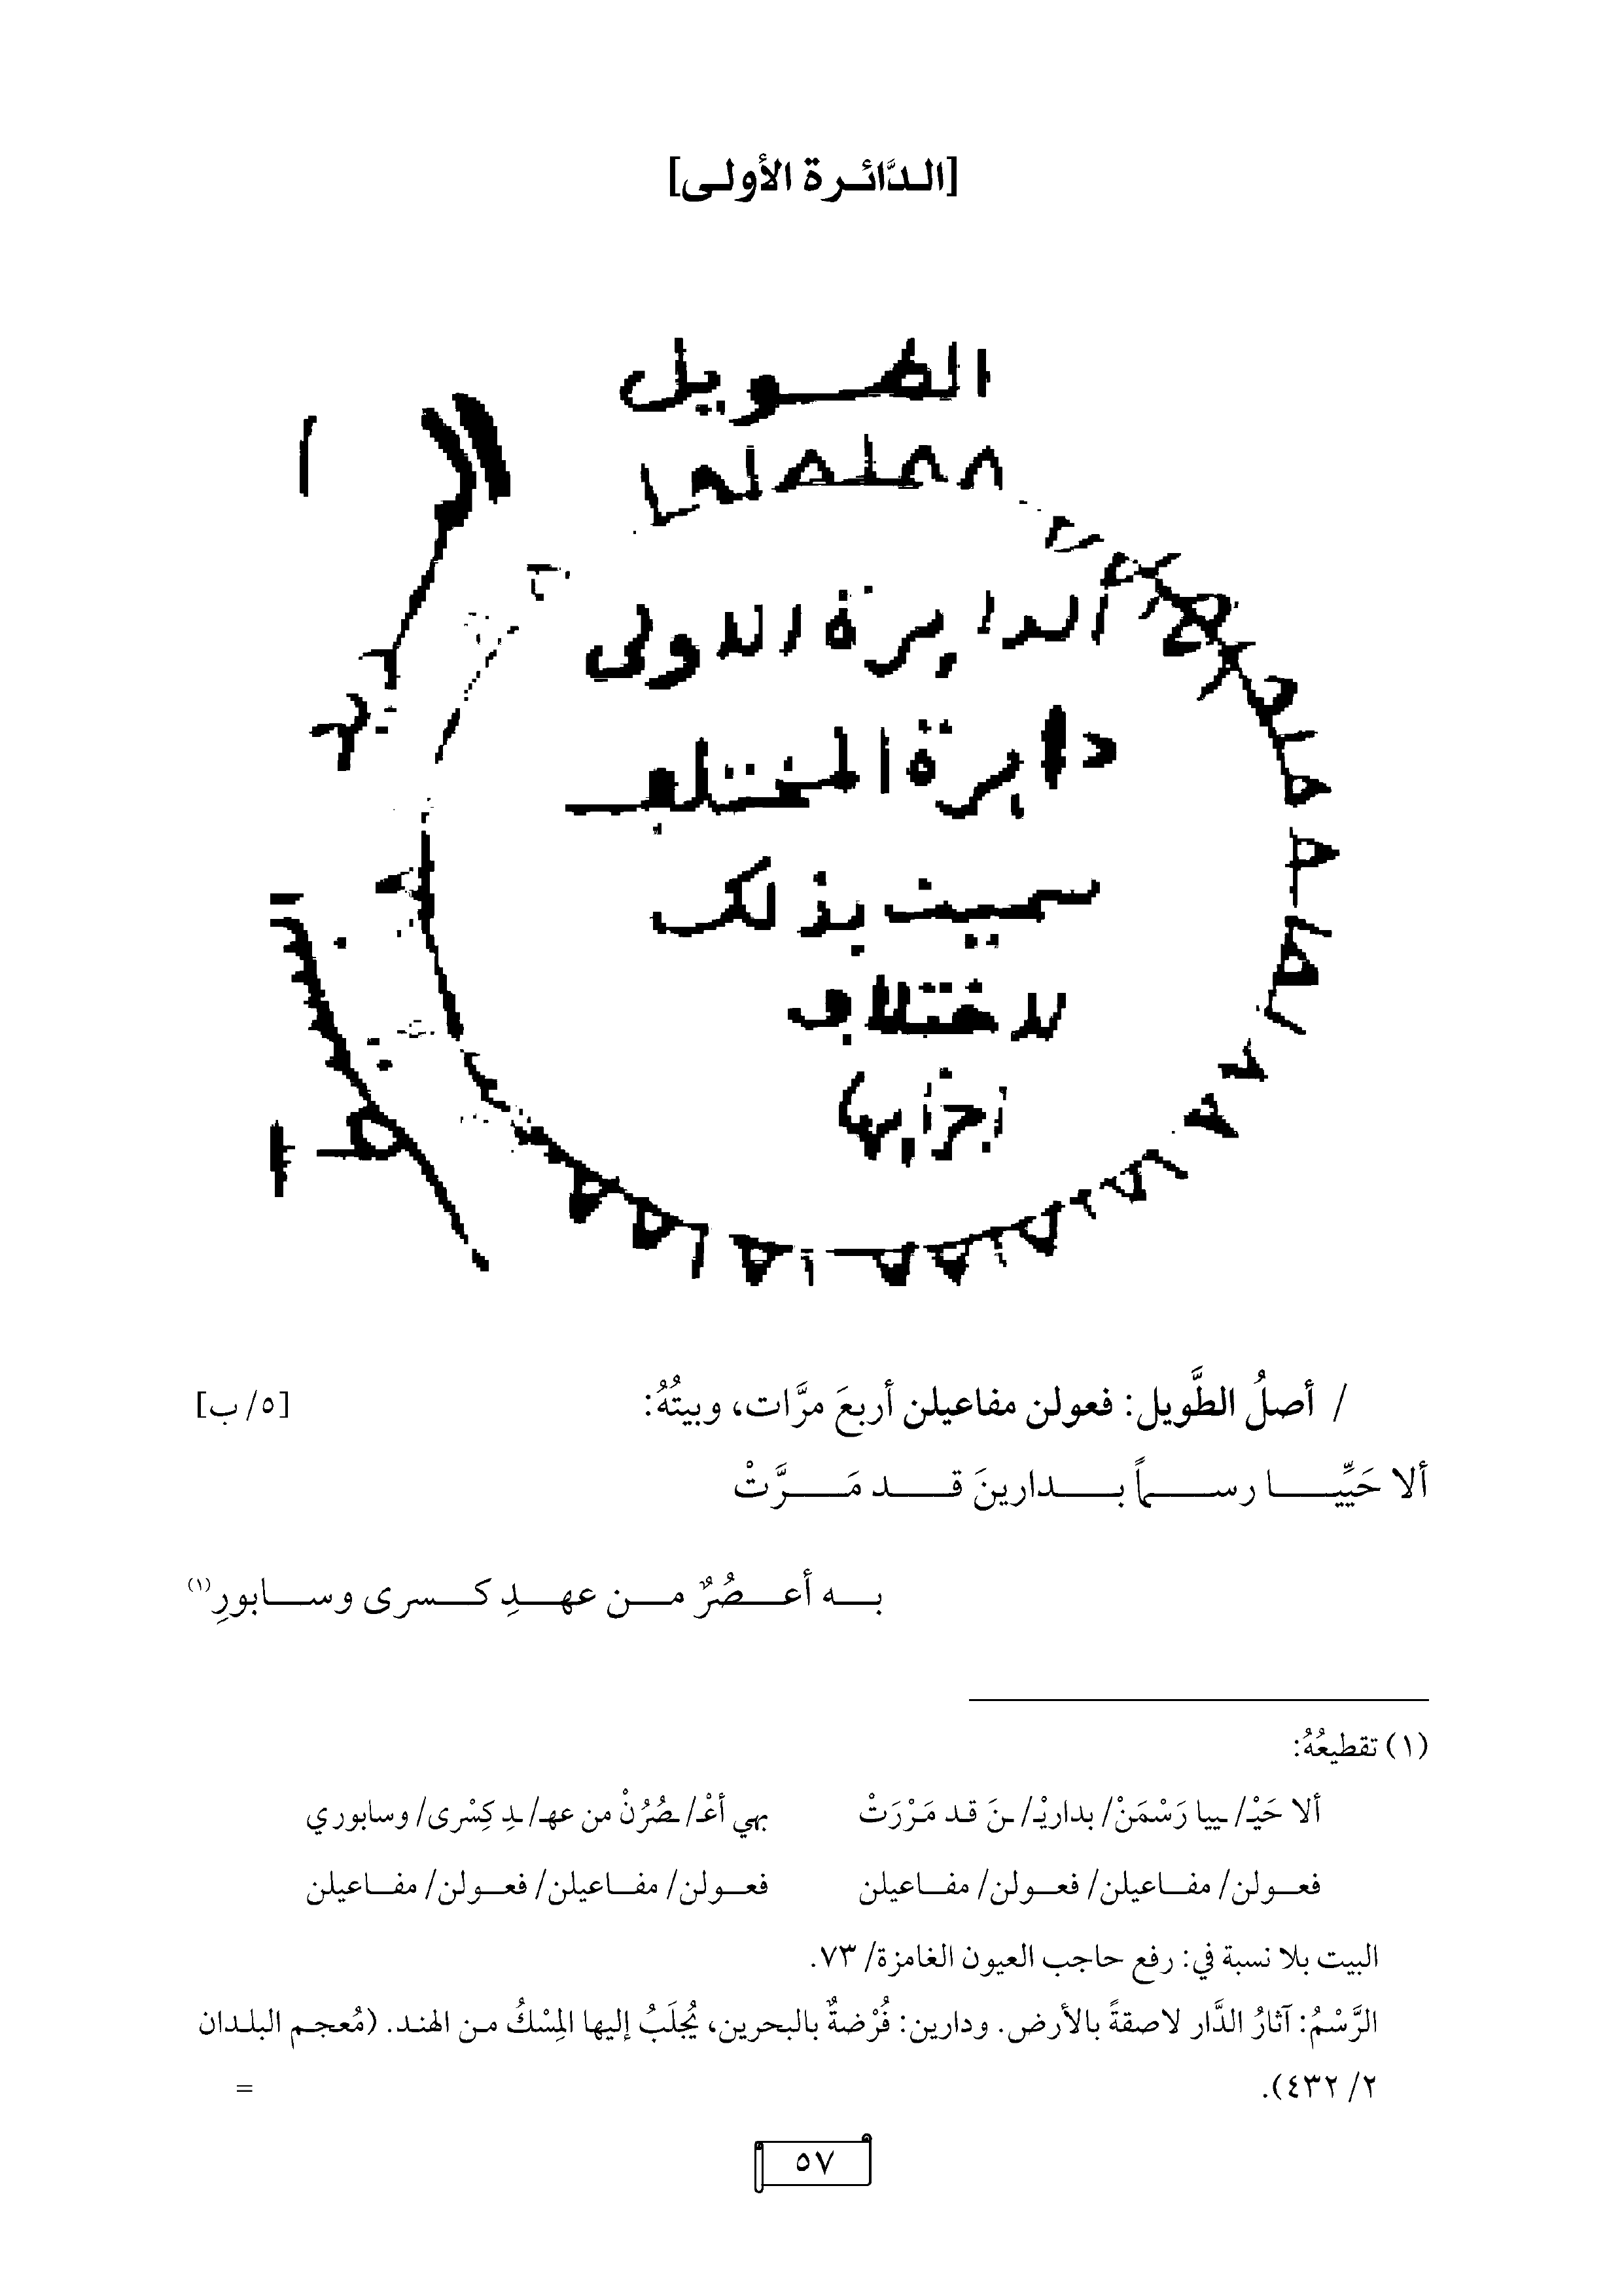 [الـدَّائـرة الأولـى]
الطويل
الدايرة الاولى
دايرة المختلف
سميت بذلك
لاختلاف
اجزايها
/ أصلُ الطَّويل: فعولن مفاعيلن أربعَ مرَّات، وبيتُهُ: [٥/ ب]
ألا حَيِّيـا رسـماً بـدارينَ قـد مَـرَّتْ
بـه أعـصُرٌ مـن عهـدِ كـسرى وسـابورِ(١)
(١) تقطيعُهُ:
ألا حَيْـ/ ـييا رَسْمَنْ/ بداريْـ/ ـنَ قد مَرْرَتْ بهي أعْـ/ ـصُرُنْ من عهـ/ ـدِ كِسْرى/ وسابوري
فعـولن/ مفـاعيلن/ فعـولن/ مفـاعيلن فعـولن/ مفـاعيلن/ فعـولن/ مفـاعيلن
البيت بلا نسبة في: رفع حاجب العيون الغامزة/ ٧٣.
الرَّسْمُ: آثارُ الدَّار لاصقةً بالأرض. ودارين: فُرْضةٌ بالبحرين، يُجلَبُ إليها المِسْكُ مـن الهنـد. (مُعجـم البلـدان
٢/ ٤٣٢). =
٥٧